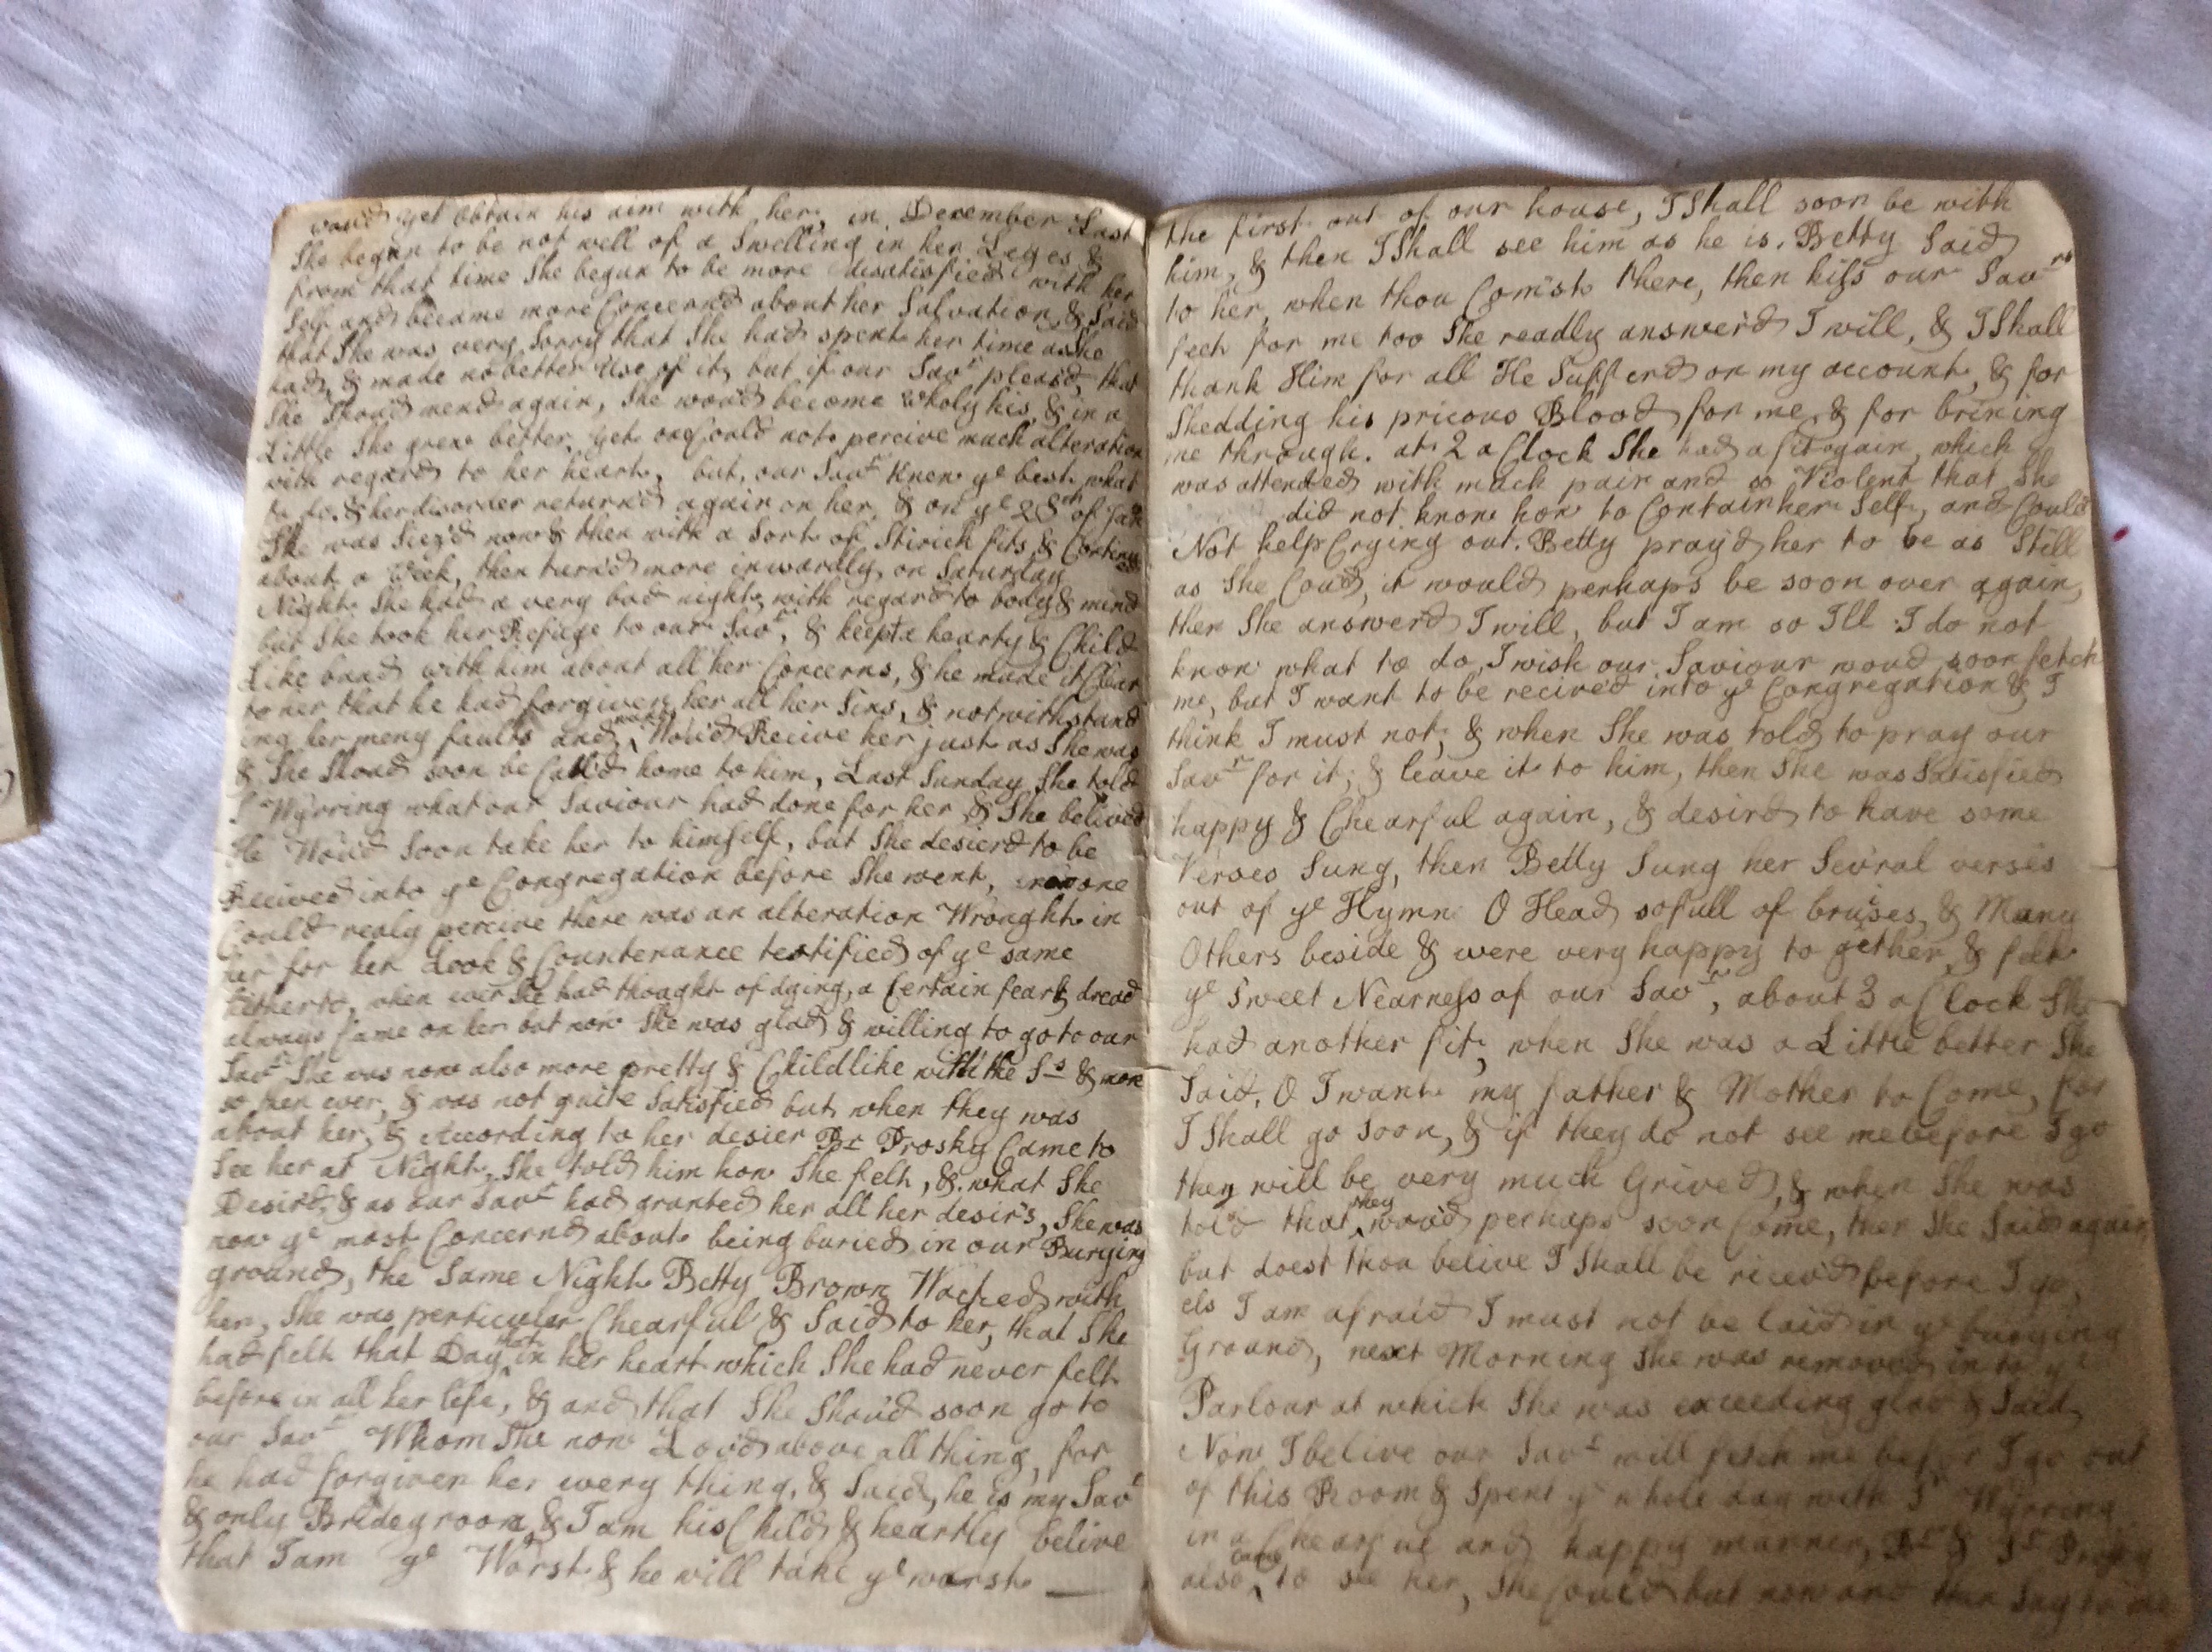 wou'd yet obtain his aim with her, in December Last
She began to be not well of a Swelling in her Leges &
from that time She began to be more disatisfied with her
Self and became more Concernd about her Salvation, & Said
that She was very Sorry that She had spent her time as She
had, & made no better Use of it, but if our Savr pleas'd, that
She Shou'd mend again, She wou'd become Wholy his, & in a
Little She grew better, yet one Could not percive much alteration
with regard to her heart, but, our Savr Knew ye best what
to do, & her disorder return'd again on her, & on ye 28th of Jan
She was Siez'd now & then with a Sort of Stirick fits &
about a Week, then turn'd more inwardly, on Saturday
Night She had a very bad night with regard to body & mind
but She took her Refuge to our Savr, & keept a hearty & Child
Like band with him about all her Concerns, & he made it Clear
to her that he had forgiven her all her Sins, & notwithstand
ing her meny faults and wants Wou'd Recive her just as She was
& She Shoud soon be Call'd home to him, Last Sunday She told
Sr Wyrring what our Saviour had done for her & She belived
He Wou'd Soon take her to himself, but She desierd to be
Recived into ye Congregation before She went, one
Could realy percive there was an alteration Wrought in
her for her Look & Countenance testified of ye same
hitherto, when ever She had thought of dying, a Certain fear & dread
always Came on her but now She was glad & willing to go to our
Savr She was now also more pretty & Childlike with the Ss & more
so then ever, & was not quite Satisfied but when they was
about her, & According to her desier Br Prosky Came to
See her at Night, She told him how She felt, & what She
Desird, & as our Savr had granted her all her desirs, She was
now ye most Concernd about being buried in our Burying
ground, the Same Night Betty Brown Wached with
her, She was perticuler Chearful & Said to her, that She
had felt that Day that in her heart which She had never felt
before in all her life, & and that She Shou'd soon go to
our Savr Whom She now Lov'd above all thing, for
he had forgiven her every thing, & Said, he is my Savr
& only Bridegroom, & I am his Child & heartly belive
that I am ye Worst & he will take ye worst —
the first out of our house, I Shall soon be with
him, & then I Shall see him as he is. Betty Said
to her, when thou Com'st there, then kiss our Savrs
feet for me too She readly answer'd I will, & I Shall
thank Him for all He Sufferd on my account, & for
Shedding his pricous Blood for me, & for brining
me through. at 2 a Clock She had a fit again, which
was attended with much pain and so Violent that She
did not know how to Contain her Self, and Could
Not help Crying out. Betty pray'd her to be as Still
as She Coud, it would perhaps be soon over again,
then She answerd I will, but I am so Ill I do not
know what to do, I wish our Saviour woud soon fetch
me, but I want to be reciv'd into ye Congregation & I
think I must not; & when She was told to pray our
Savr for it, & leave it to him, then She was Satisfied
happy & Chearful again, & desird to have some
Verses Sung, then Betty Sung her Sev'ral verses
out of ye Hymn O Head so full of bruises, & Many
Others beside & were very happy to gether, & felt
ye Sweet Nearness of our Savr, about 3 a Clock She
had another fit, when She was a Little better She
Said, O I want my father & Mother to Come, for
I Shall go Soon, & if they do not see me before I go
they will be very much Griv'd, & when She was
told that they wou'd perhaps soon Come, then She Said again
but doest thou belive I Shall be reciev'd before I go,
els I am afraid I must not be laid in ye burying
Ground, next Morning She was removed in to ye
Parlour at which She was exceeding glad & Said,
Now I belive our Savr will fetch me befor I go out
of this Room & Spent ye whole day with Sr Wyrring
in a Chearful and happy manner, Br & Sr Prosky
also came to see her, She Could but now and then Say to